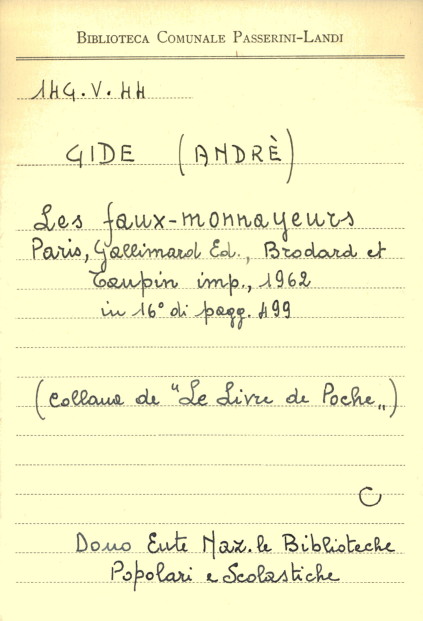 BIBLIOTECA COMUNALE PASSERINI-LANDI
14G.V.44
GIDE (ANDRÈ)
Les faux-monnayeurs
Paris, Gallimard Ed., Brodard et
Taupin imp., 1962
in 16° di pagg. 499
(collana de "Le Livre de Poche„)
C
Dono Ente Naz.le Biblioteche
Popolari e Scolastiche